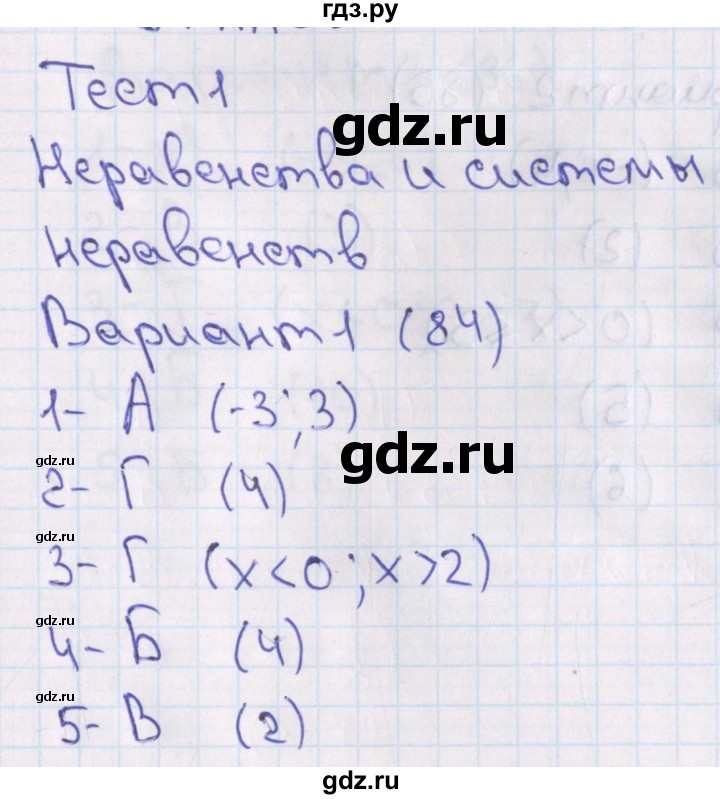 гдз.ру
Тест 1
gdz.ru
Неравенства и системы
неравенств
Вариант 1 (84)
1- А (-3; 3)
gdz.ru
gdz.ru
2- Г (4)
gdz.ru
3- Г (x<0; x>2)
gdz.ru
4- Б (4)
gdz.ru
5- В (2)
gdz.ru